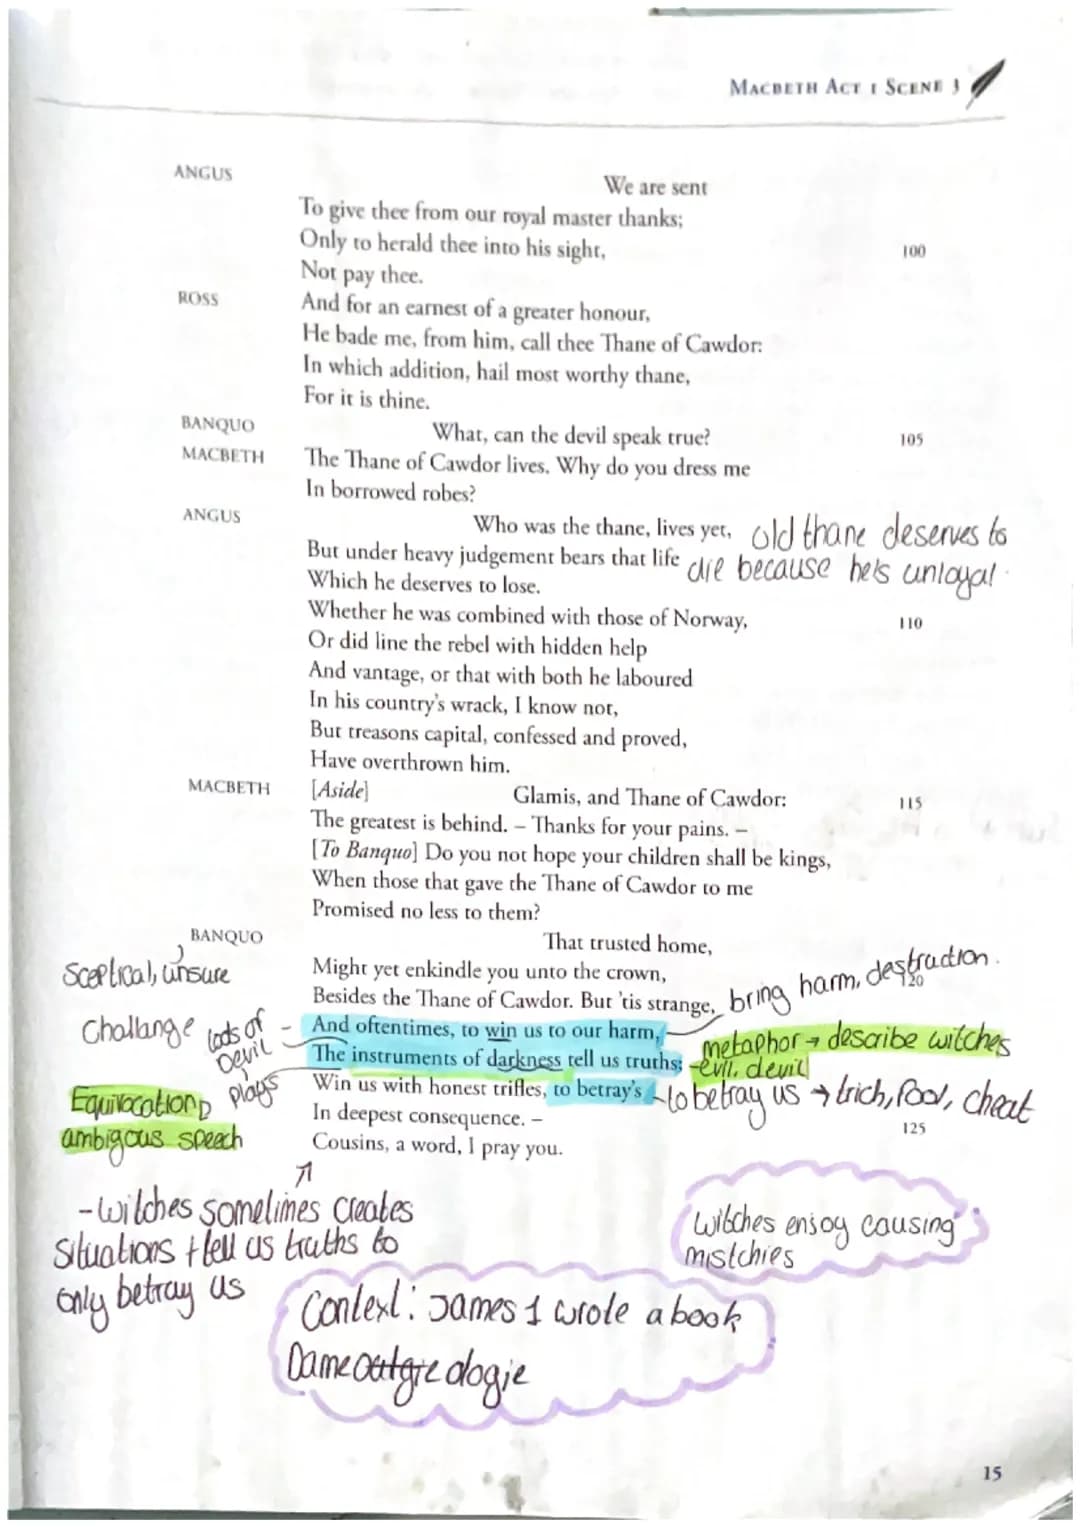 MACBETH ACT 1 SCENE 3
ANGUS
We are sent
To give thee from our royal master thanks;
Only to herald thee into his sight,
100
Not pay thee.
ROSS
And for an earnest of a greater honour,
He bade me, from him, call thee Thane of Cawdor:
In which addition, hail most worthy thane,
For it is thine.
BANQUO
What, can the devil speak true?
105
MACBETH
The Thane of Cawdor lives. Why do you dress me
In borrowed robes?
ANGUS
Who was the thane, lives yet,
old thane deserves to
But under heavy judgement bears that life
die because he's unloyal
Which he deserves to lose.
Whether he was combined with those of Norway,
110
Or did line the rebel with hidden help
And vantage, or that with both he laboured
In his country's wrack, I know not,
But treasons capital, confessed and proved,
Have overthrown him.
MACBETH
[Aside] Glamis, and Thane of Cawdor:
115
The greatest is behind. – Thanks for your pains. –
[To Banquo] Do you not hope your children shall be kings,
When those that gave the Thane of Cawdor to me
Promised no less to them?
BANQUO
That trusted home,
sceptical, unsure
Might yet enkindle you unto the crown,
120
Besides the Thane of Cawdor. But 'tis strange,
bring harm, destraction.
Challange
lods of
Devil
plays
And oftentimes, to win us to our harm,
The instruments of darkness tell us truths;
metaphor → describe witches
-evil, devil
Win us with honest trifles, to betray's
to betray us → trich, fool, cheat
Equivocation
ambigous speech
In deepest consequence. –
125
Cousins, a word, I pray you.
- witches sometimes creates
situations + tell us truths to
only betray us
witches enjoy causing
mistchies
Context: James 1 wrote a book
15